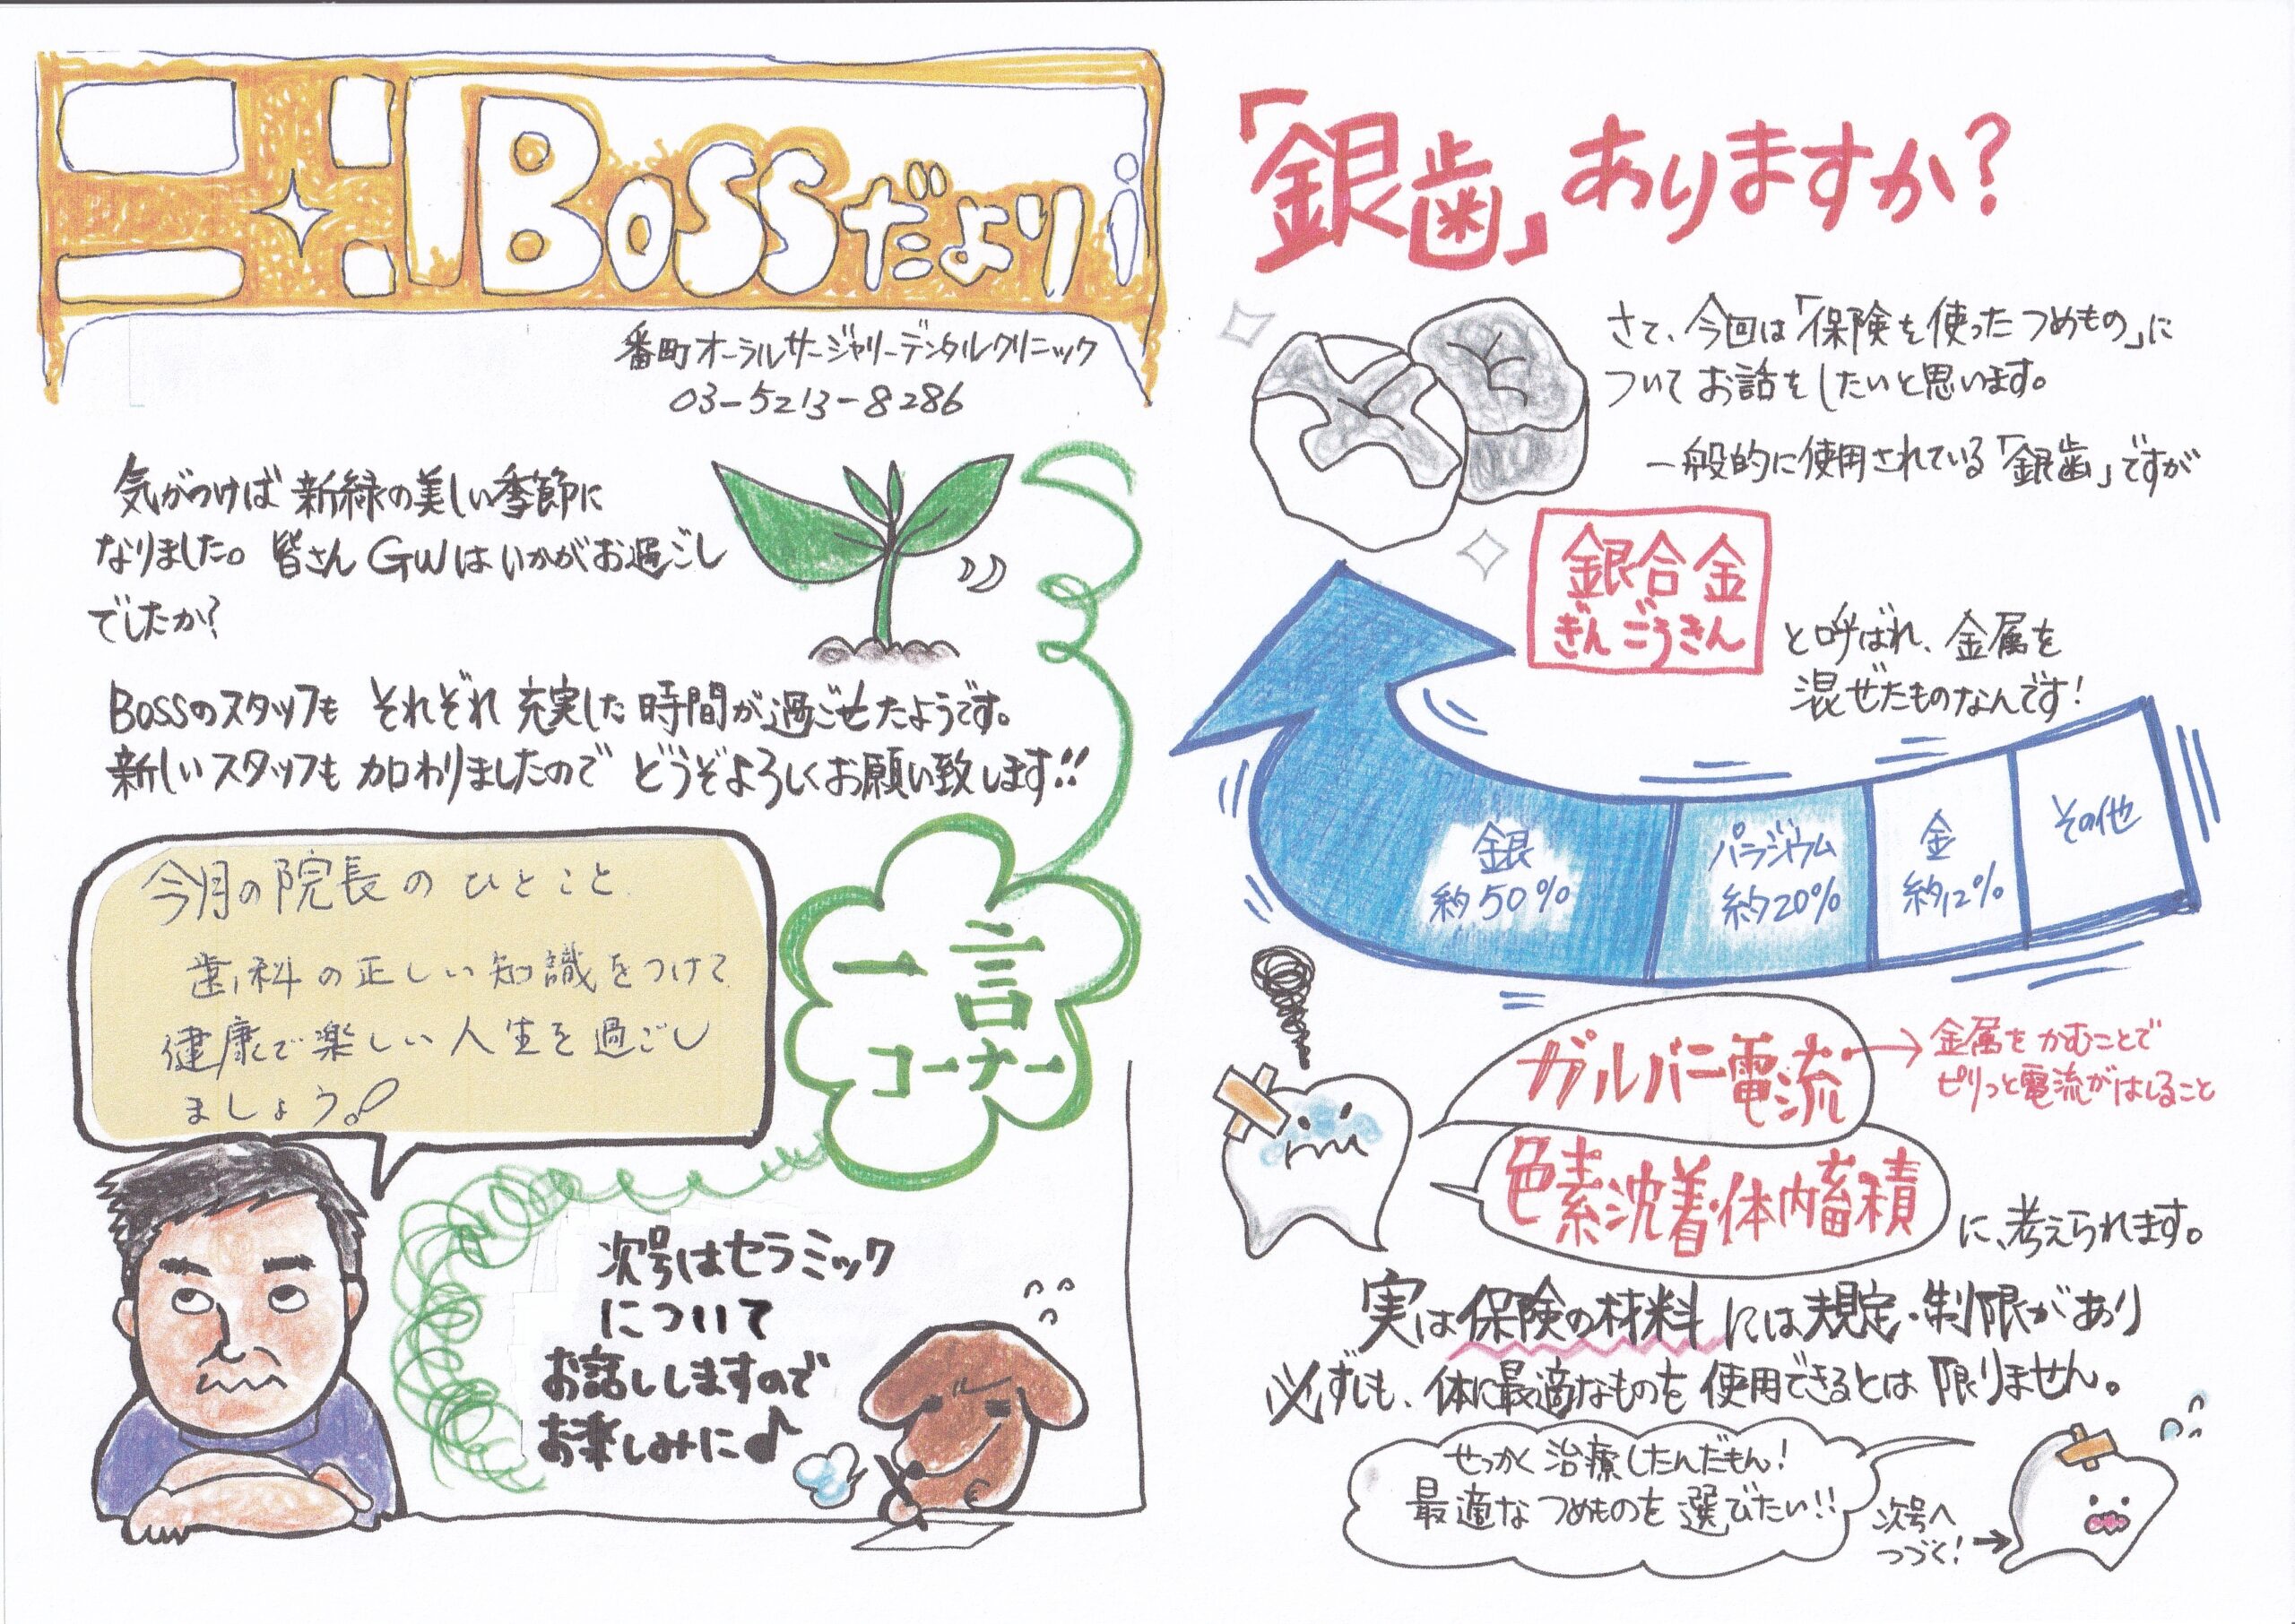 BOSSだより
番町オーラルサージャリーデンタルクリニック
03-5213-8286
気がつけば新緑の美しい季節に
なりました。皆さんGWはいかがお過ごし
でしたか?
BOSSのスタッフも それぞれ 充実した 時間が過ごせたようです。
新しいスタッフも 加わりましたので どうぞよろしくお願い致します!!
一言
コーナー
今月の院長の ひとこと
歯科の正しい知識をつけて
健康で楽しい人生を過ごし
ましょう。
次号はセラミック
について
お話ししますので
お楽しみに♪
「銀歯」ありますか?
さて、今回は「保険を使ったつめもの」に
ついてお話をしたいと思います。
一般的に使用されている「銀歯」ですが
銀合金
ぎんごうきん
と呼ばれ、金属を
混ぜたものなんです!
銀
約50%
パラジウム
約20%
金
約12%
その他
ガルバニー電流
→金属をかむことで
ピリっと電流がはしること
色素沈着・体内蓄積
に、考えられます。
実は保険の材料には規定・制限があり
必ずしも、体に最適なものを使用できるとは限りません。
せっかく治療したんだもん!
最適なつめものを選びたい!!
次号へ
つづく!→